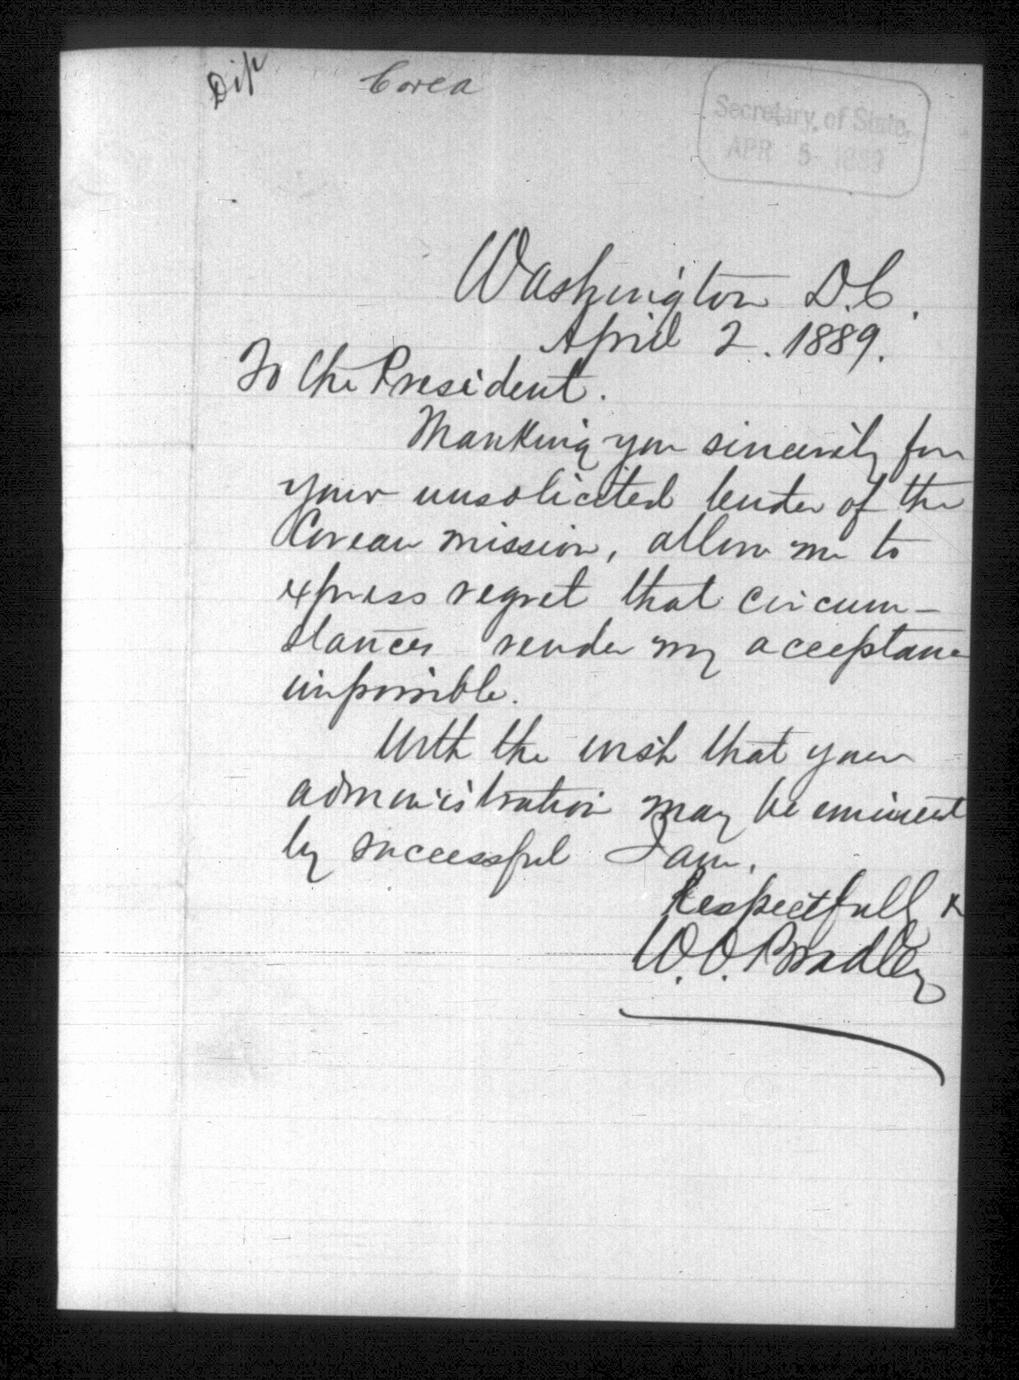 Dip Corea
Secretary of State.
APR 5 1889
Washington D.C.
April 2. 1889.
To the President.
Thanking you sincerely for
your unsolicited tender of the
Corean mission, allow me to
express regret that circum-
stances render my acceptance
impossible.
With the wish that your
administration may be eminent
ly successful I am,
Respectfully &c
W.O. Bradley